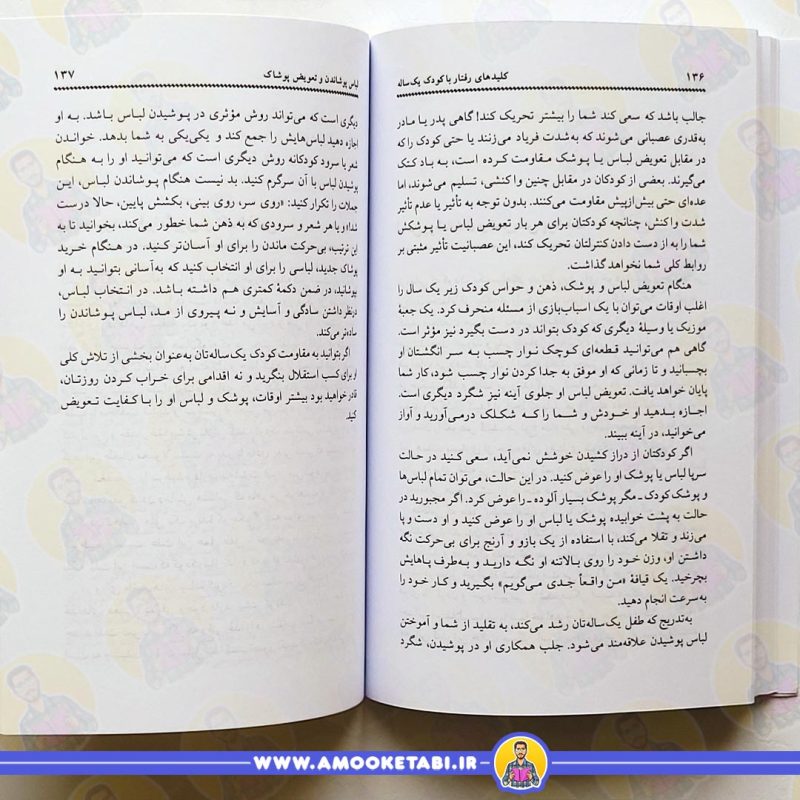 ۱۳۶
کلیدهای رفتار با کودک یک‌ساله
جالب باشد که سعی کند شما را بیشتر تحریک کند! گاهی پدر یا مادر
به‌قدری عصبانی می‌شوند که به‌شدت فریاد می‌زنند یا حتی کودک را که
در مقابل تعویض لباس یا پوشک مقاومت کرده است، به باد کتک
می‌گیرند. بعضی از کودکان در مقابل چنین واکنشی، تسلیم می‌شوند، اما
عده‌ای حتی بیش‌ازپیش مقاومت می‌کنند. بدون توجه به تأثیر یا عدم تأثیر
شدت واکنش، چنانچه کودکتان برای هر بار تعویض لباس یا پوشکش
شما را به از دست دادن کنترلتان تحریک کند، این عصبانیت تأثیر مثبتی بر
روابط کلی شما نخواهد گذاشت.
هنگام تعویض لباس و پوشک، ذهن و حواس کودک زیر یک سال را
اغلب اوقات می‌توان با یک اسباب‌بازی از مسئله منحرف کرد. یک جعبهٔ
موزیک یا وسیلهٔ دیگری که کودک بتواند در دست بگیرد نیز مؤثر است.
گاهی هم می‌توانید قطعه‌ای کوچک نوار چسب به سر انگشتان او
بچسبانید و تا زمانی که او موفق به جدا کردن نوار چسب شود، کار شما
پایان خواهد یافت. تعویض لباس او جلوی آینه نیز شگرد دیگری است.
اجازه بدهید او خودش و شما را که شکلک درمی‌آورید و آواز
می‌خوانید، در آینه ببیند.
اگر کودکتان از دراز کشیدن خوشش نمی‌آید، سعی کنید در حالت
سرپا لباس یا پوشک او را عوض کنید. در این حالت، می‌توان تمام لباس‌ها
و پوشک کودک ـ مگر پوشک بسیار آلوده ـ را عوض کرد. اگر مجبورید در
حالت به پشت خوابیده پوشک یا لباس او را عوض کنید و او دست و پا
می‌زند و تقلا می‌کند، با استفاده از یک بازو و آرنج برای بی‌حرکت نگه
داشتن او، وزن خود را روی بالاتنه او نگه دارید و به‌طرف پاهایش
بچرخید. یک قیافهٔ «من واقعاً جدی می‌گویم» بگیرید و کار خود را
به‌سرعت انجام دهید.
به‌تدریج که طفل یک‌ساله‌تان رشد می‌کند، به تقلید از شما و آموختن
لباس پوشیدن علاقه‌مند می‌شود. جلب همکاری او در پوشیدن، شگرد
لباس پوشاندن و تعویض پوشاک
۱۳۷
دیگری است که می‌تواند روش مؤثری در پوشیدن لباس باشد. به او
اجازه دهید لباس‌هایش را جمع کند و یکی‌یکی به شما بدهد. خواندن
شعر یا سرود کودکانه روش دیگری است که می‌توانید او را به هنگام
پوشیدن لباس با آن سرگرم کنید. بد نیست هنگام پوشاندن لباس، این
جملات را تکرار کنید: «روی سر، روی بینی، بکشش پایین، حالا درست
شد!» و یا هر شعر و سرودی که به ذهن شما خطور می‌کند، بخوانید تا به
این ترتیب، بی‌حرکت ماندن را برای او آسان‌تر کنید. در هنگام خرید
پوشاک جدید، لباسی را برای او انتخاب کنید که به‌آسانی بتوانید به او
بپوشانید، در ضمن دکمهٔ کمتری هم داشته باشد. در انتخاب لباس،
درنظر داشتن سادگی و آسایش و نه پیروی از مد، لباس پوشاندن را
ساده‌تر می‌کند.
اگر بتوانید به مقاومت کودک یک‌ساله‌تان به‌عنوان بخشی از تلاش کلی
او برای کسب استقلال بنگرید و نه اقدامی برای خراب کردن روزتان،
قادر خواهید بود بیشتر اوقات، پوشک و لباس او را با کفایت تعویض
کنید.
WWW.AMOOKETABI.IR